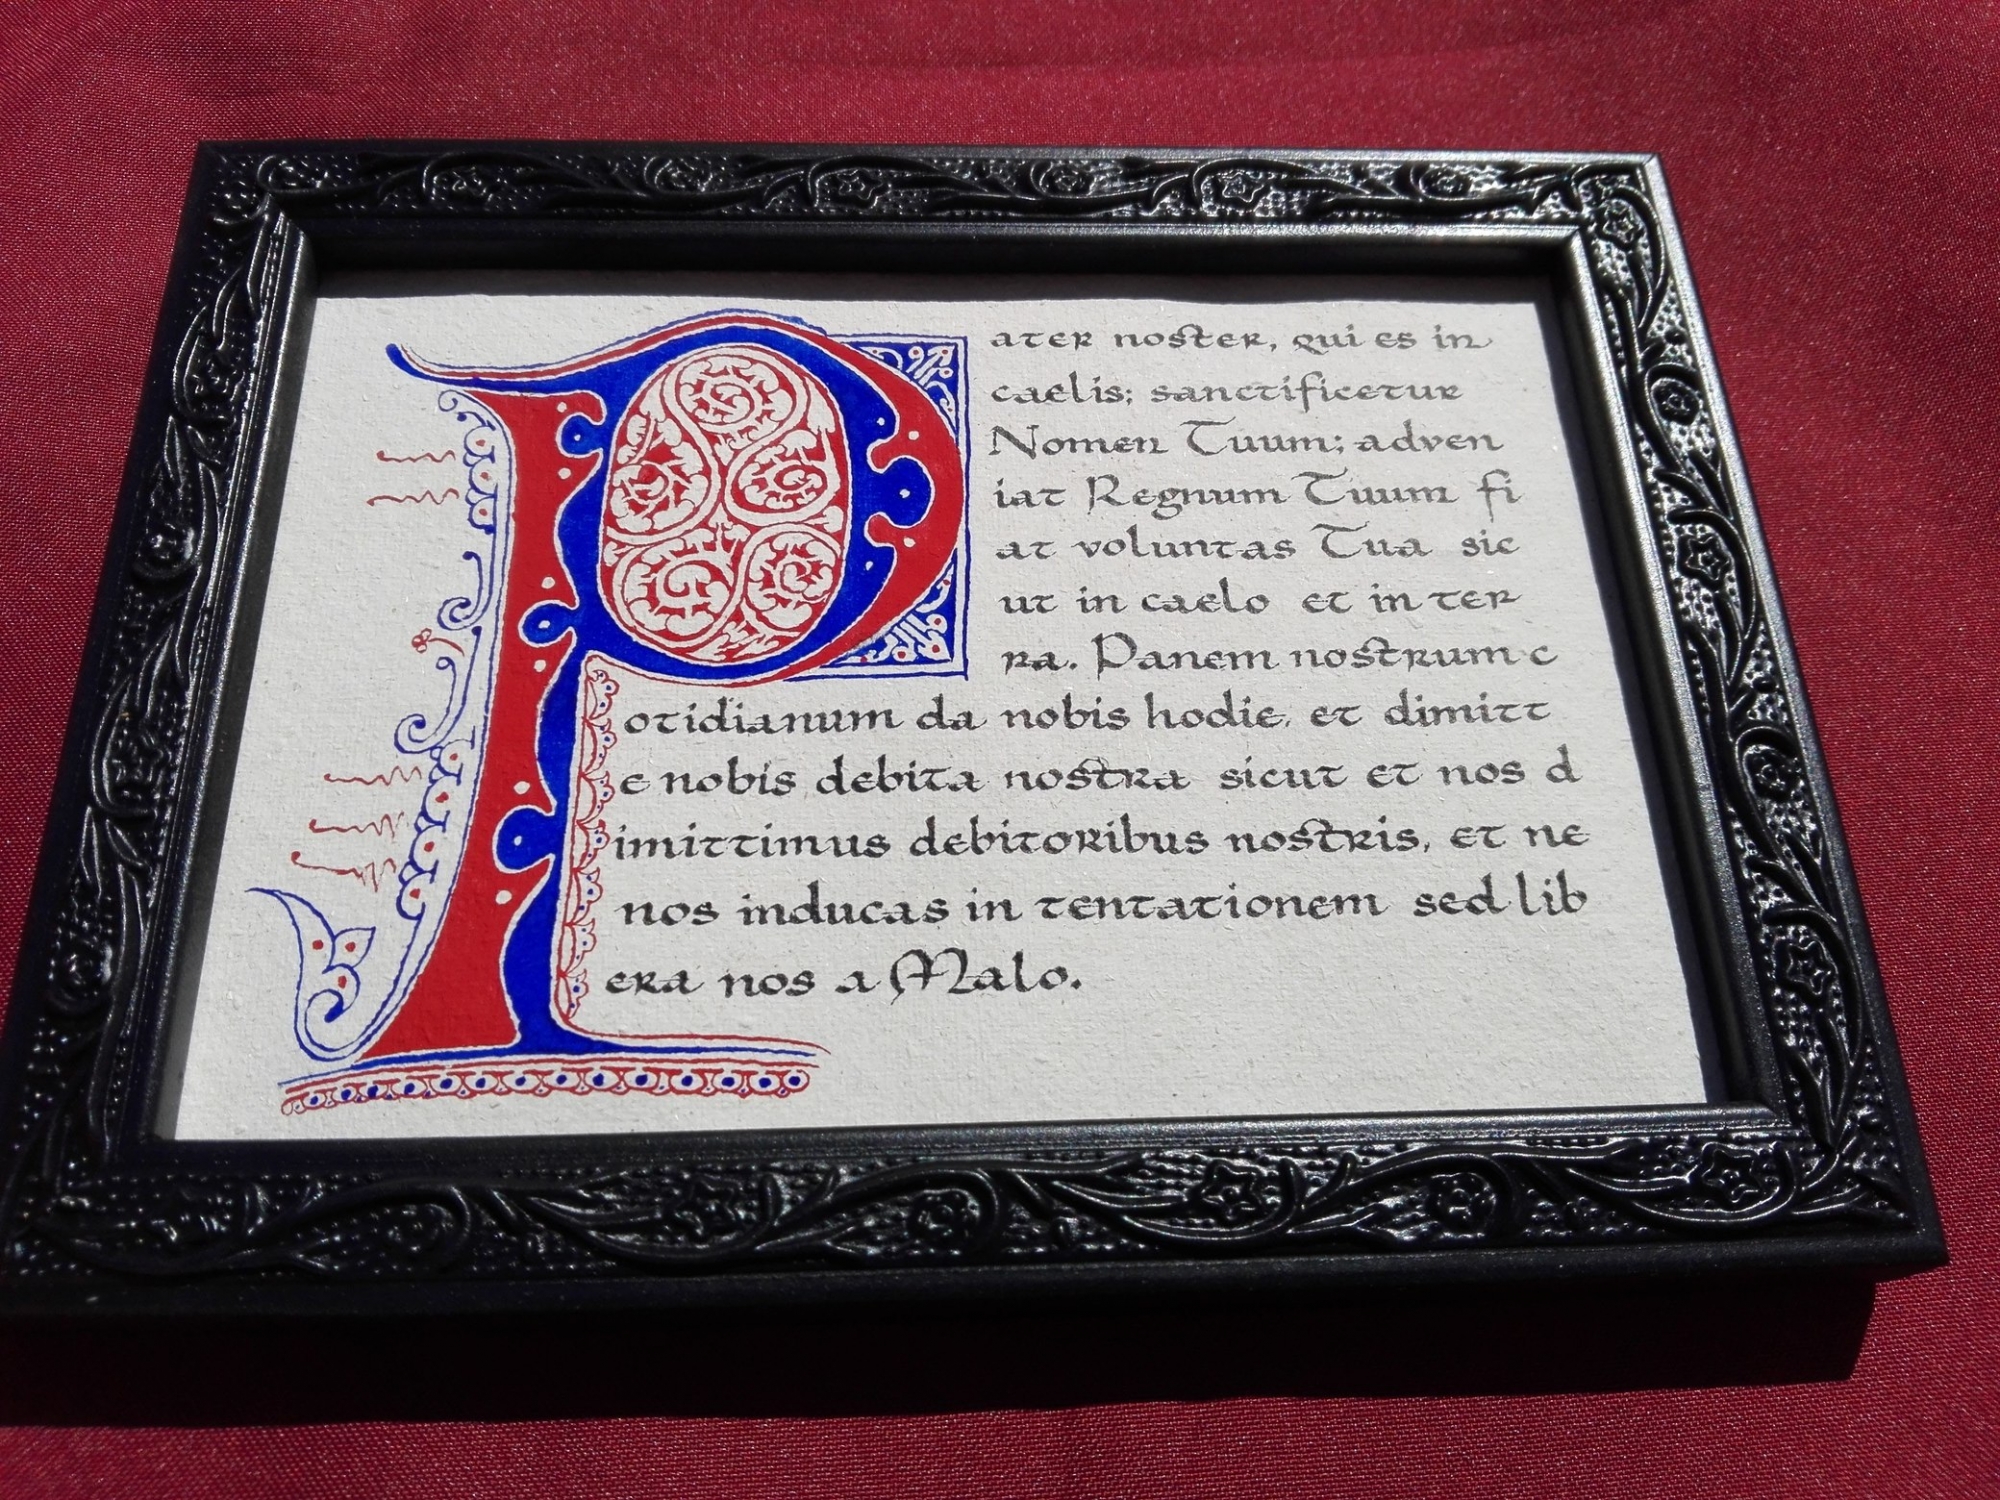 Pater noster, qui es in
caelis; sanctificetur
Nomen Tuum; adven
iat Regnum Tuum fi
at voluntas Tua sic
ut in caelo et in ter
ra. Panem nostrum c
otidianum da nobis hodie, et dimitt
e nobis debita nostra sicut et nos d
imittimus debitoribus nostris, et ne
nos inducas in tentationem sed lib
era nos a Malo.